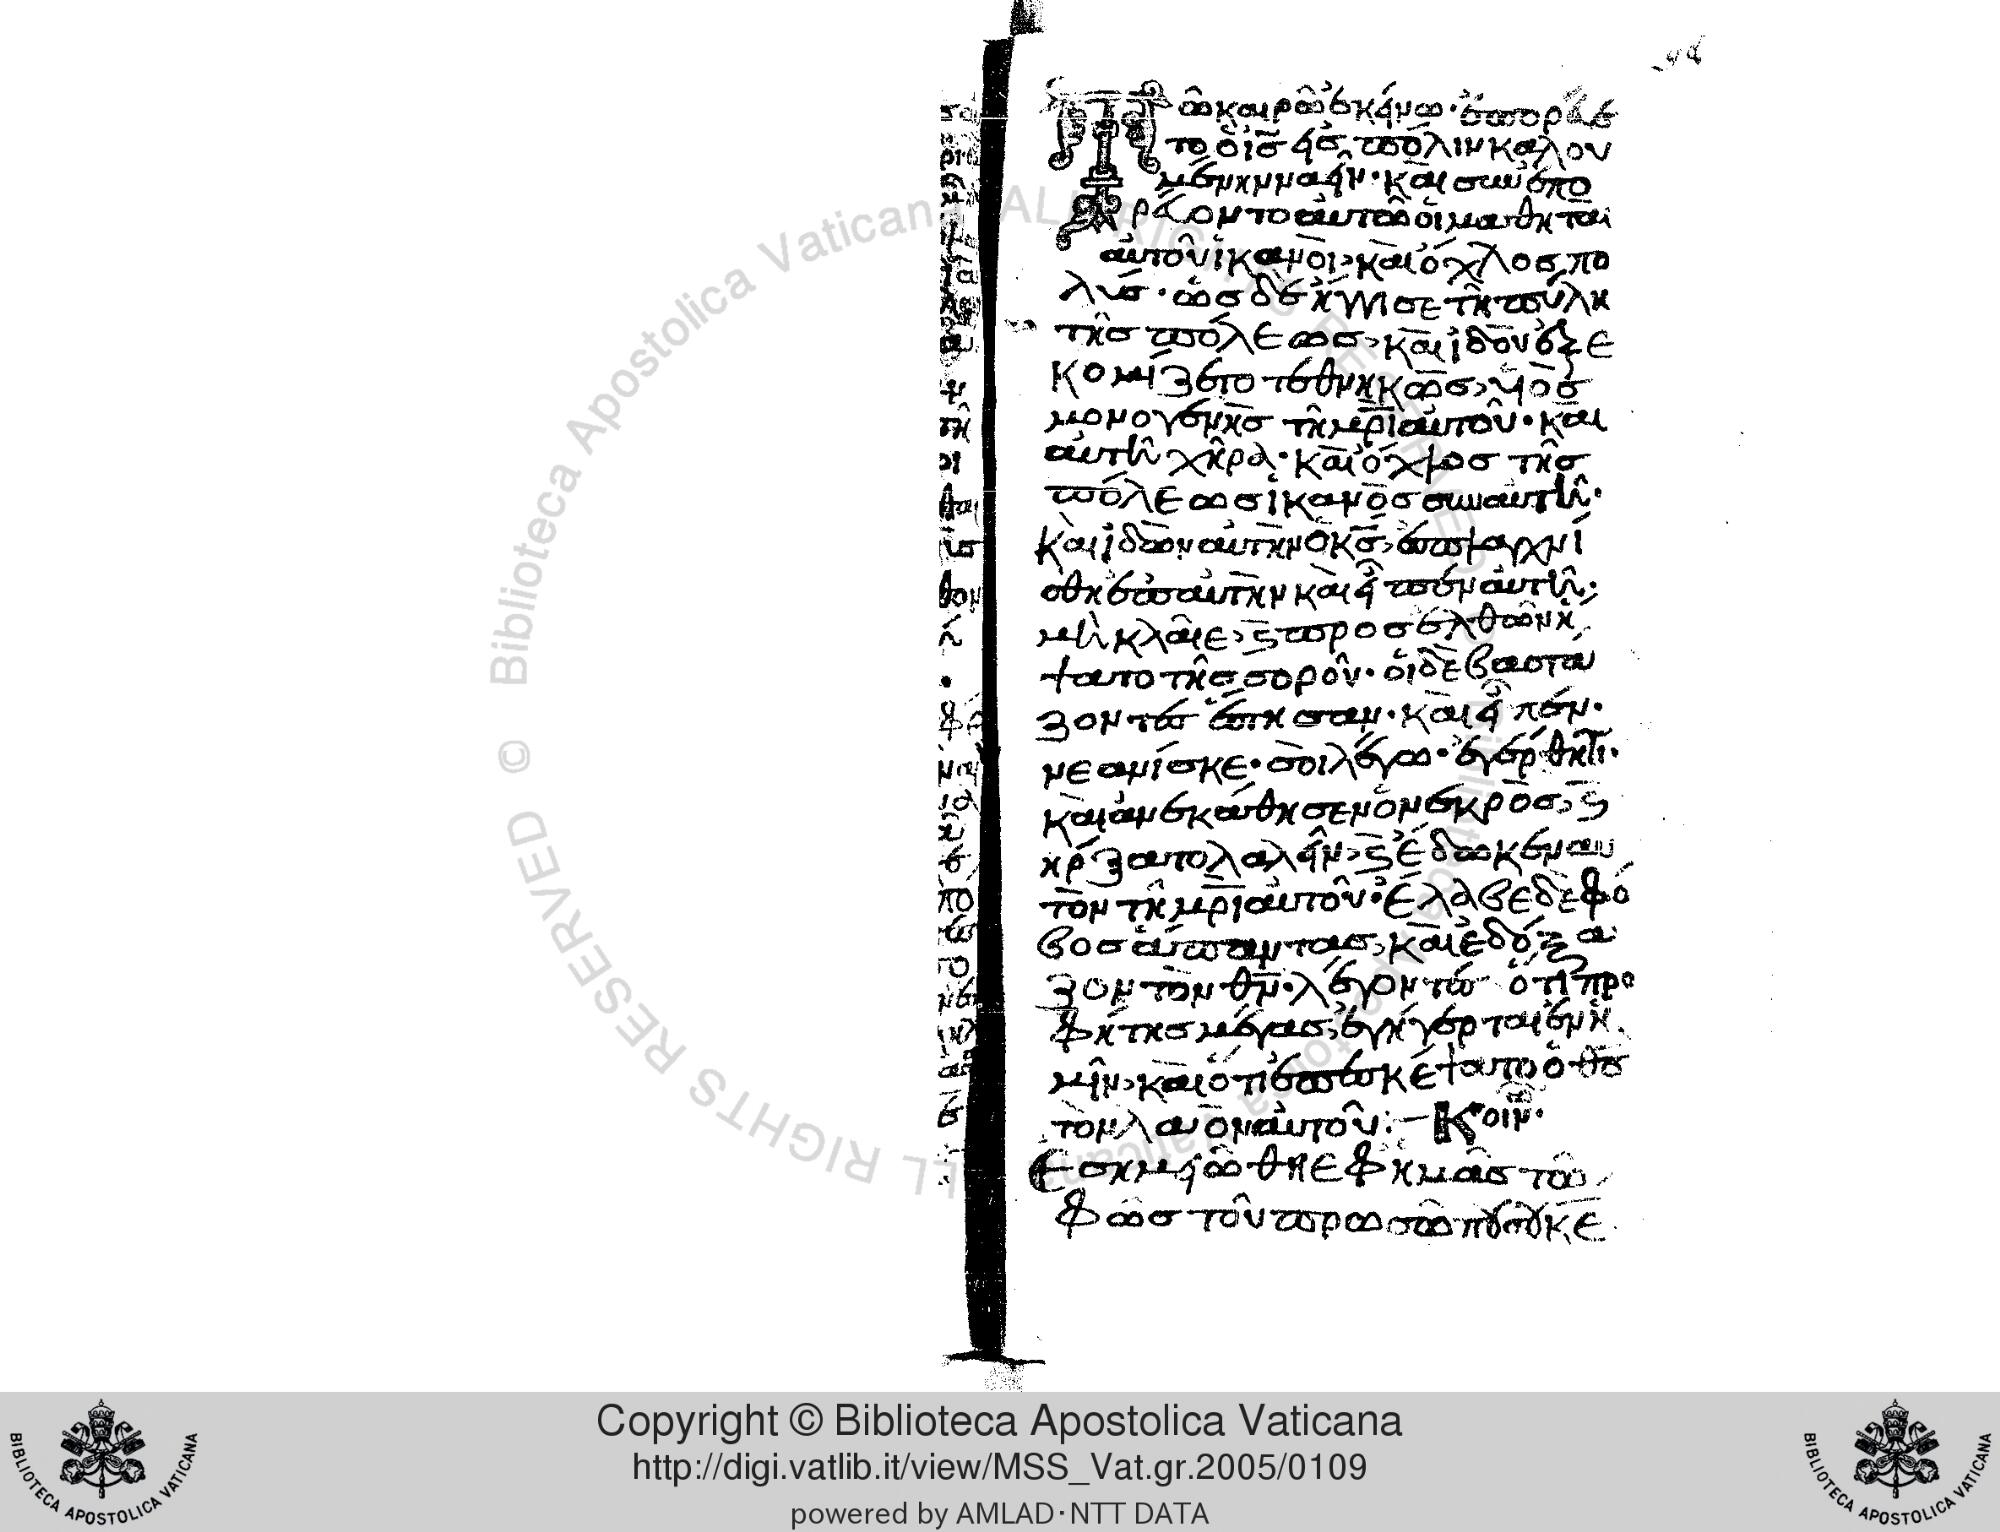 Τῶ καιρῶ ἐκείνω· ἐπορεύε
το ὁ ἰς εἰς πόλιν καλου
μένην ναεῖν· καὶ συνεπο
ρέυοντο αὐτῶ ὁι μαθηταὶ
αὐτοῦ ἱκανοὶ, καὶ ὄχλος πο
λύς· ὡς δὲ ἤγγισε τῆ πύλη
τῆς πόλεως, καὶ ἰδοῦ ἐξε
κομίζετο τεθνηκῶς, υἱὸς
μονογενὴς τῆ μρὶ αὐτοῦ· καὶ
αὐτὴ χῆρα· καὶ ὄχλος τῆς
πόλεως ἱκανὸς σὺν αὐτῆ·
καὶ ἰδὼν αὐτὴν ὁ κς, ἐσπλαγχνί
σθη ἐπ αὐτὴν καὶ εἶπεν αὐτῆ·
μὴ κλαῖε, ϗ προσελθῶν ἥ
ψατο τῆς σοροῦ· ὁι δὲ βαστά
ζοντες ἔστησαν· καὶ εἶπέν·
νεανίσκε· σοὶ λέγω· ἐγέρθητι·
καὶ ἀνεκάθησεν ὁ νεκρὸς, ϗ
ἤρξατο λαλεῖν, ϗ ἔδωκεν αυ
τὸν τῆ μρὶ αὐτοῦ· ἔλαβε δὲ φό
βος ἅπαντας, καὶ ἐδόξα
ζον τὸν θν· λέγοντες ὅτι προ
φήτης μέγας ἐγήγερται ἐν ἡ
μῖν, καὶ ὅτι ἐπεσκέψατο ὁ θς
τὸν λαὸν αὐτοῦ: Κοιν·
Εσημειώθη ἐφ ἡμᾶς τὸ
φῶς τοῦ προσώπου σου κε
Copyright © Biblioteca Apostolica Vaticana
http://digi.vatlib.it/view/MSS_Vat.gr.2005/0109
powered by AMLAD·NTT DATA